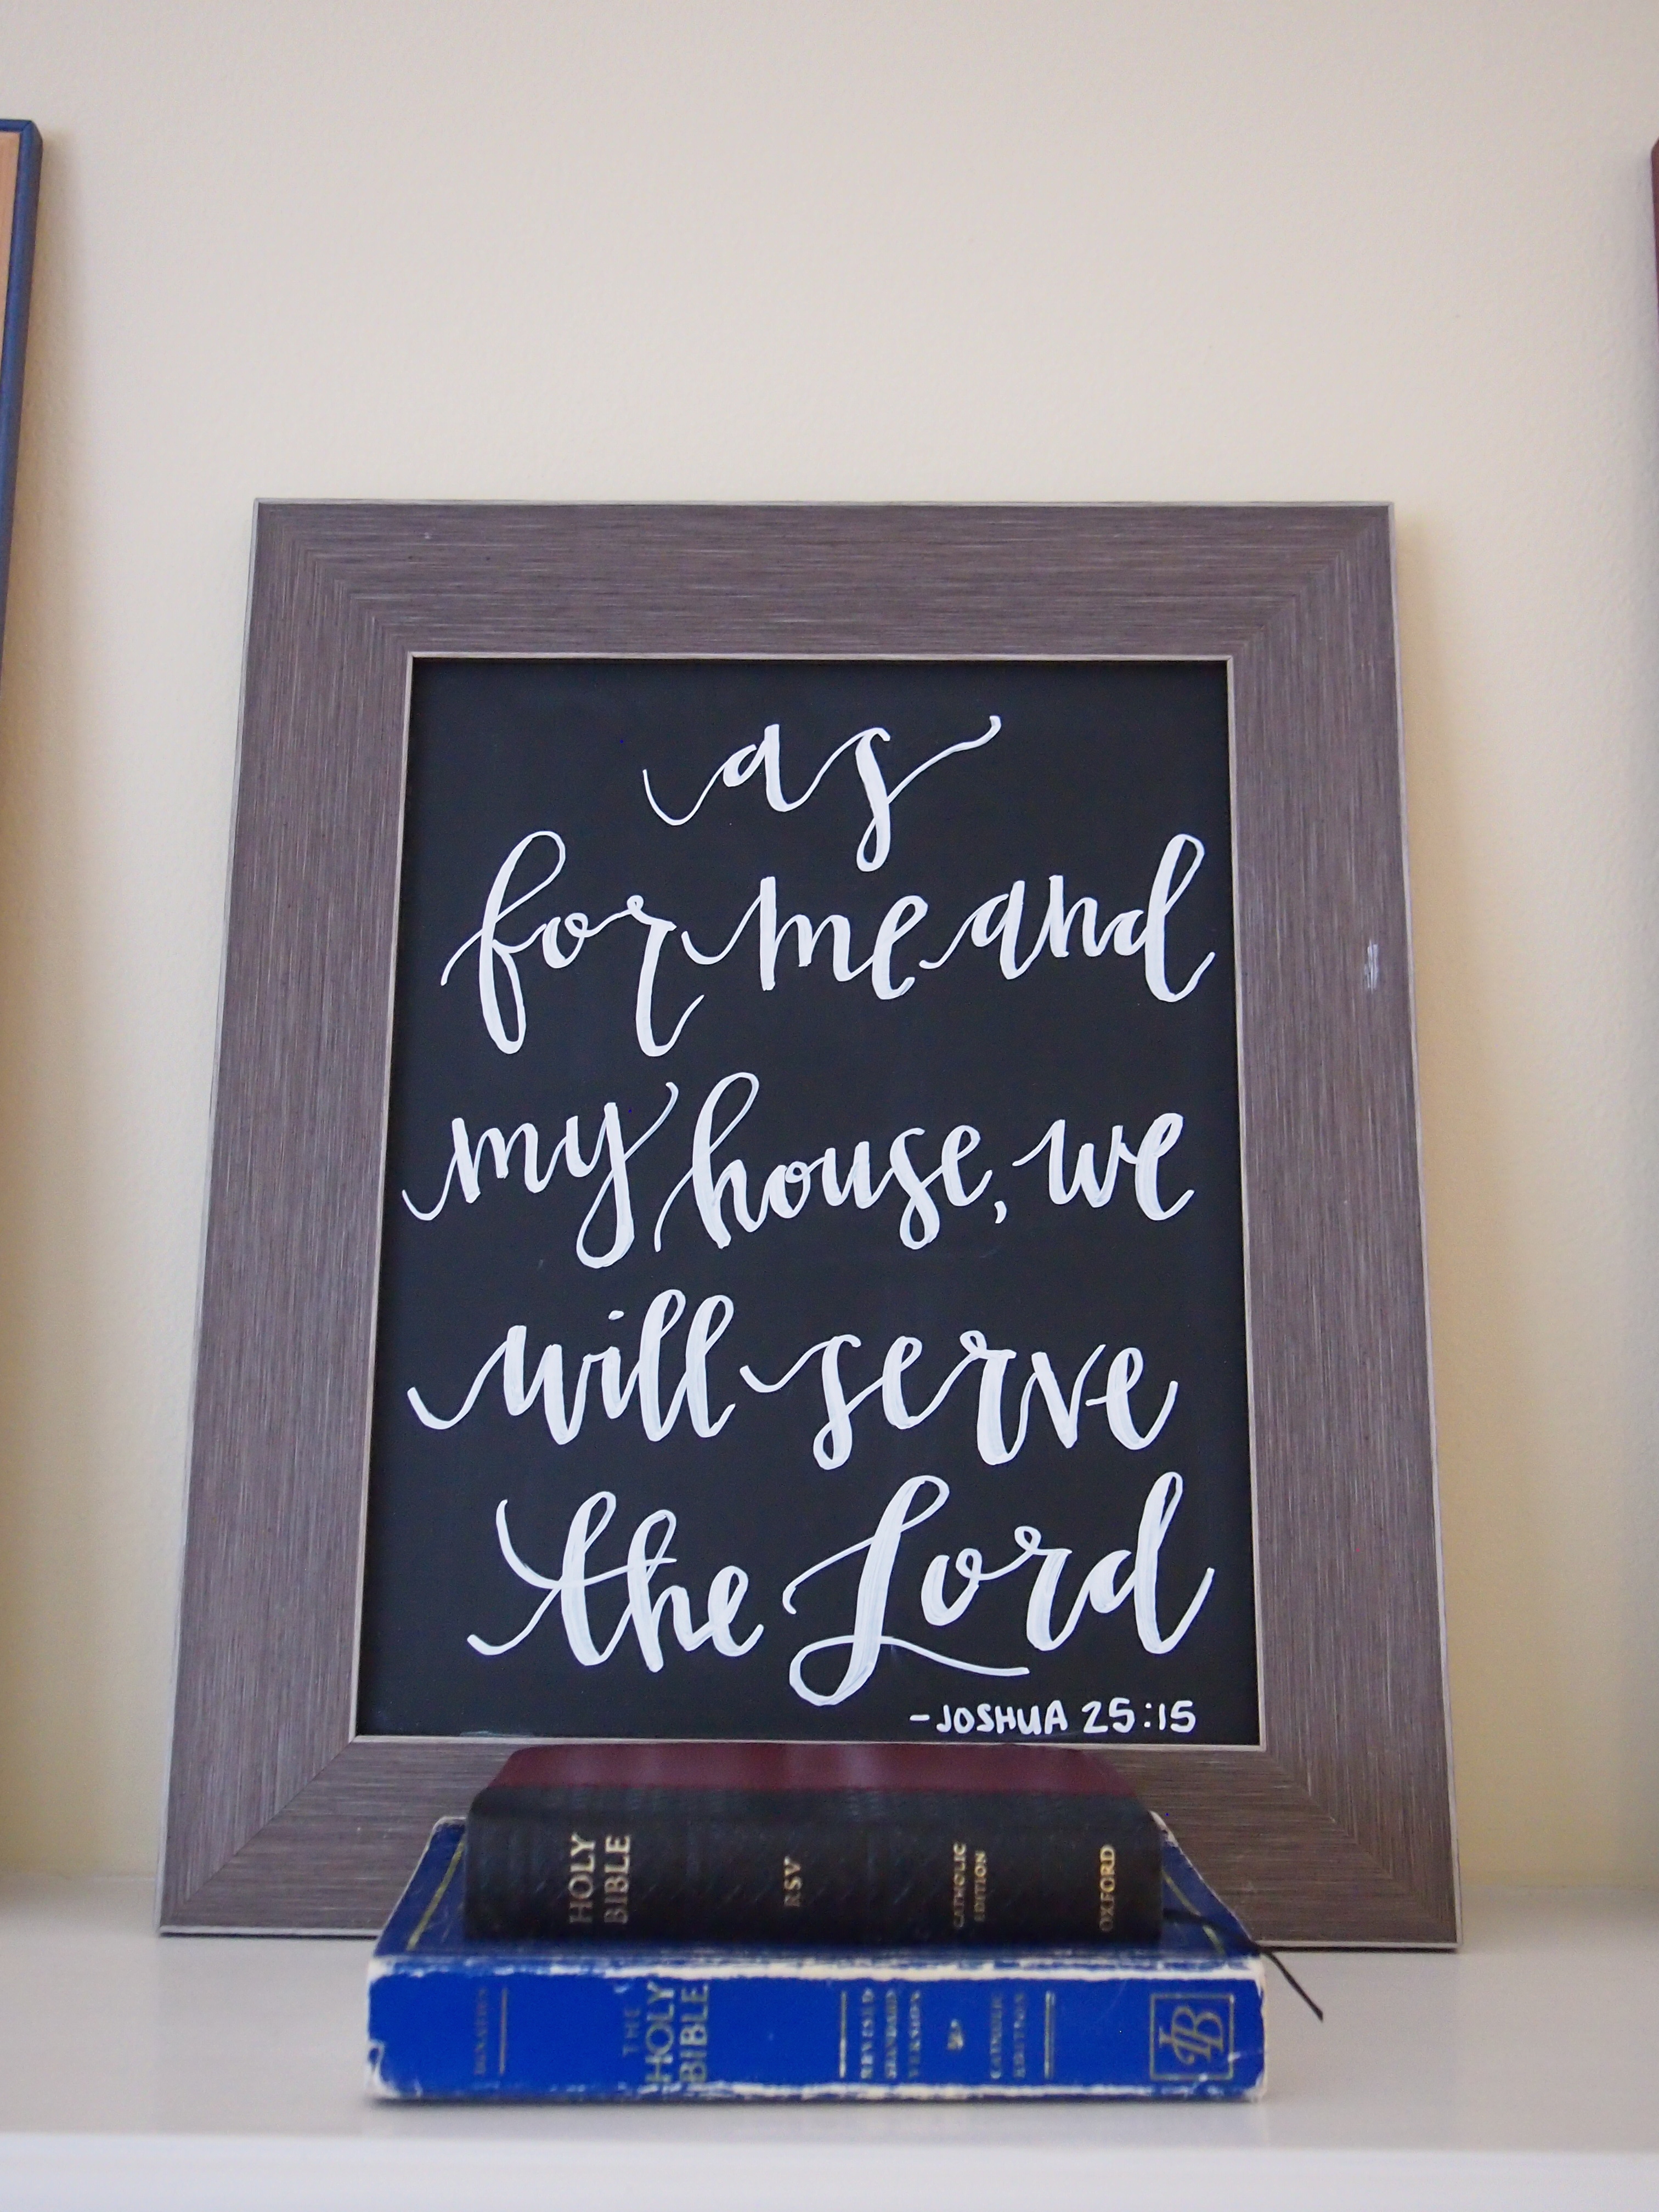 as
for me and
my house, we
will serve
the Lord
-JOSHUA 25:15
HOLY
BIBLE
RSV
CATHOLIC
EDITION
OXFORD
IGNATIUS
THE
HOLY
BIBLE
REVISED
STANDARD
VERSION
CATHOLIC
EDITION
IB